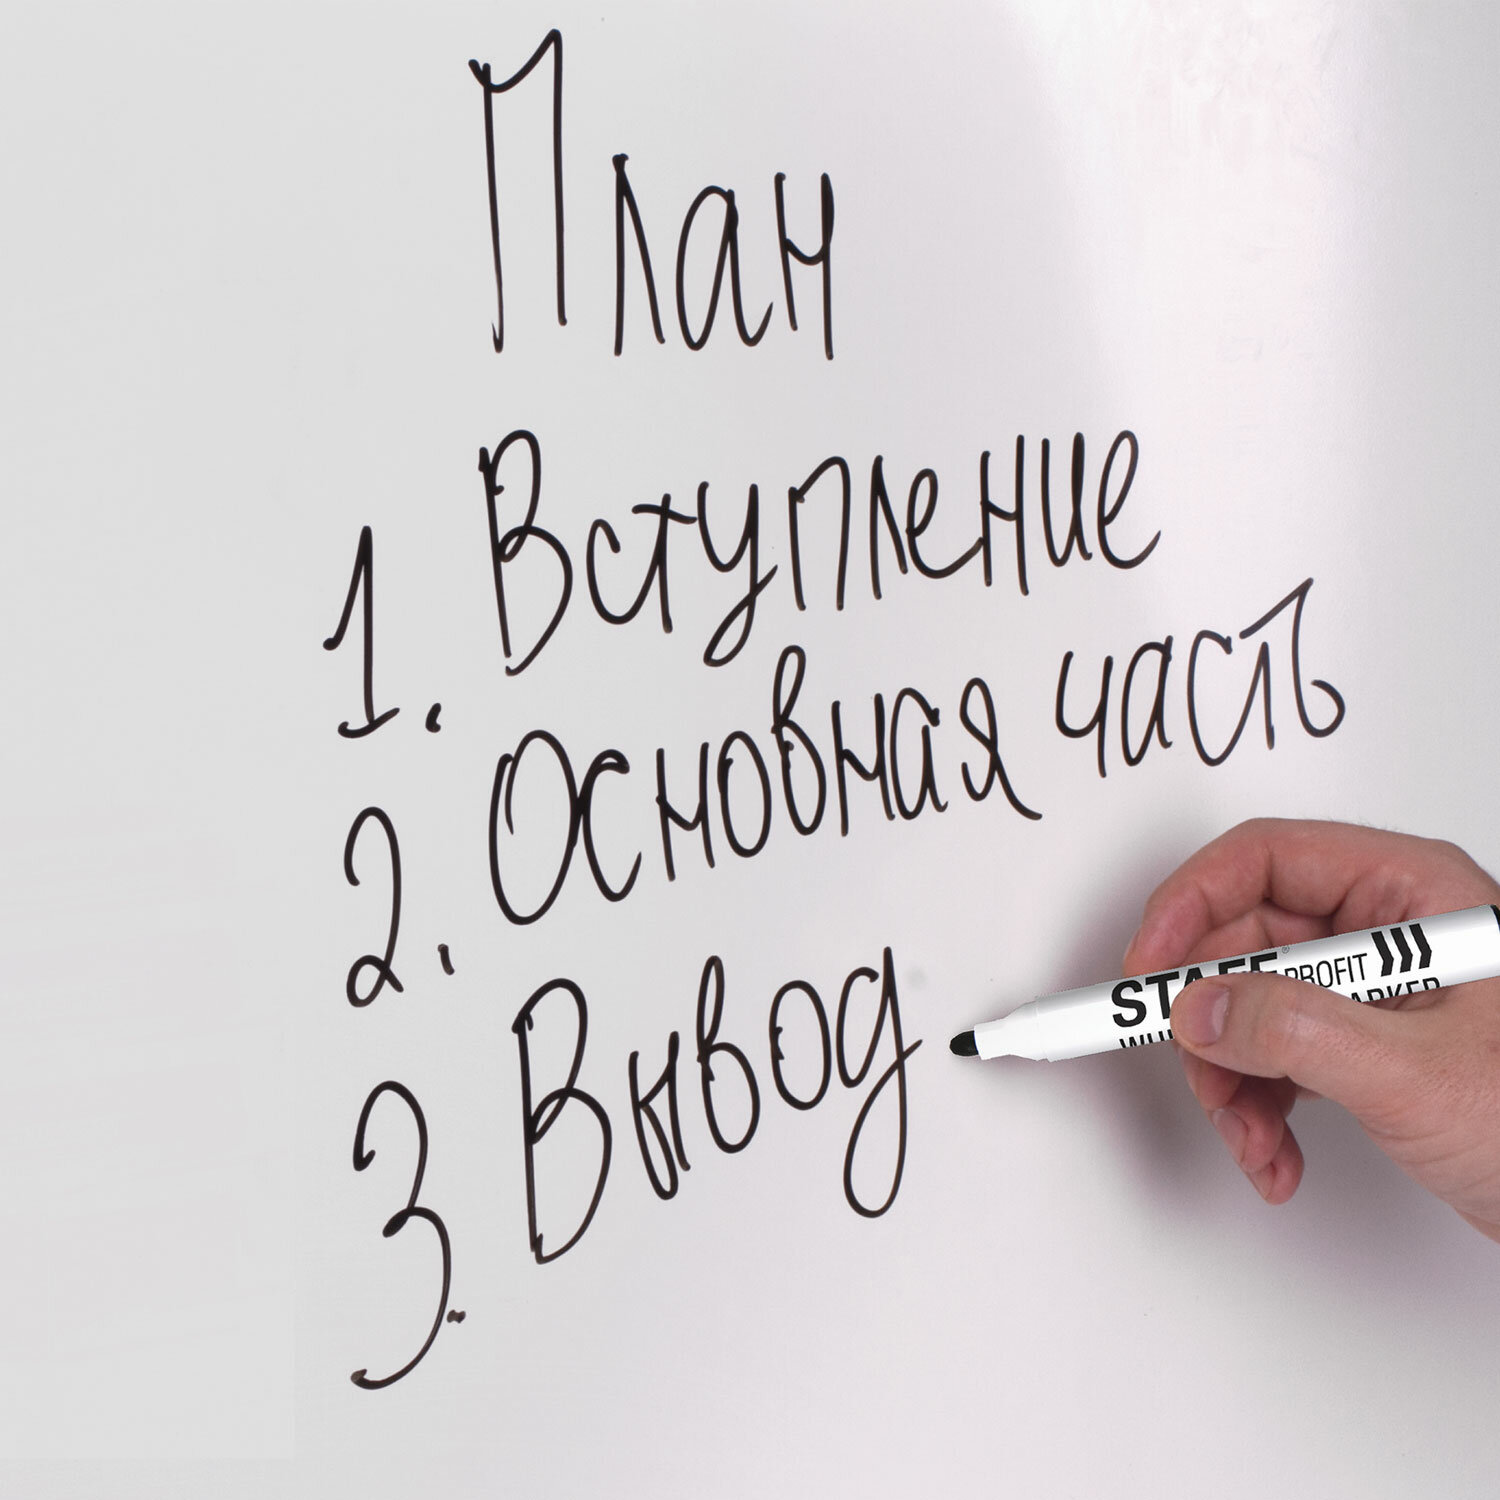 План
1. Вступление
2. Основная часть
3. Вывод
STAFF® PROFIT